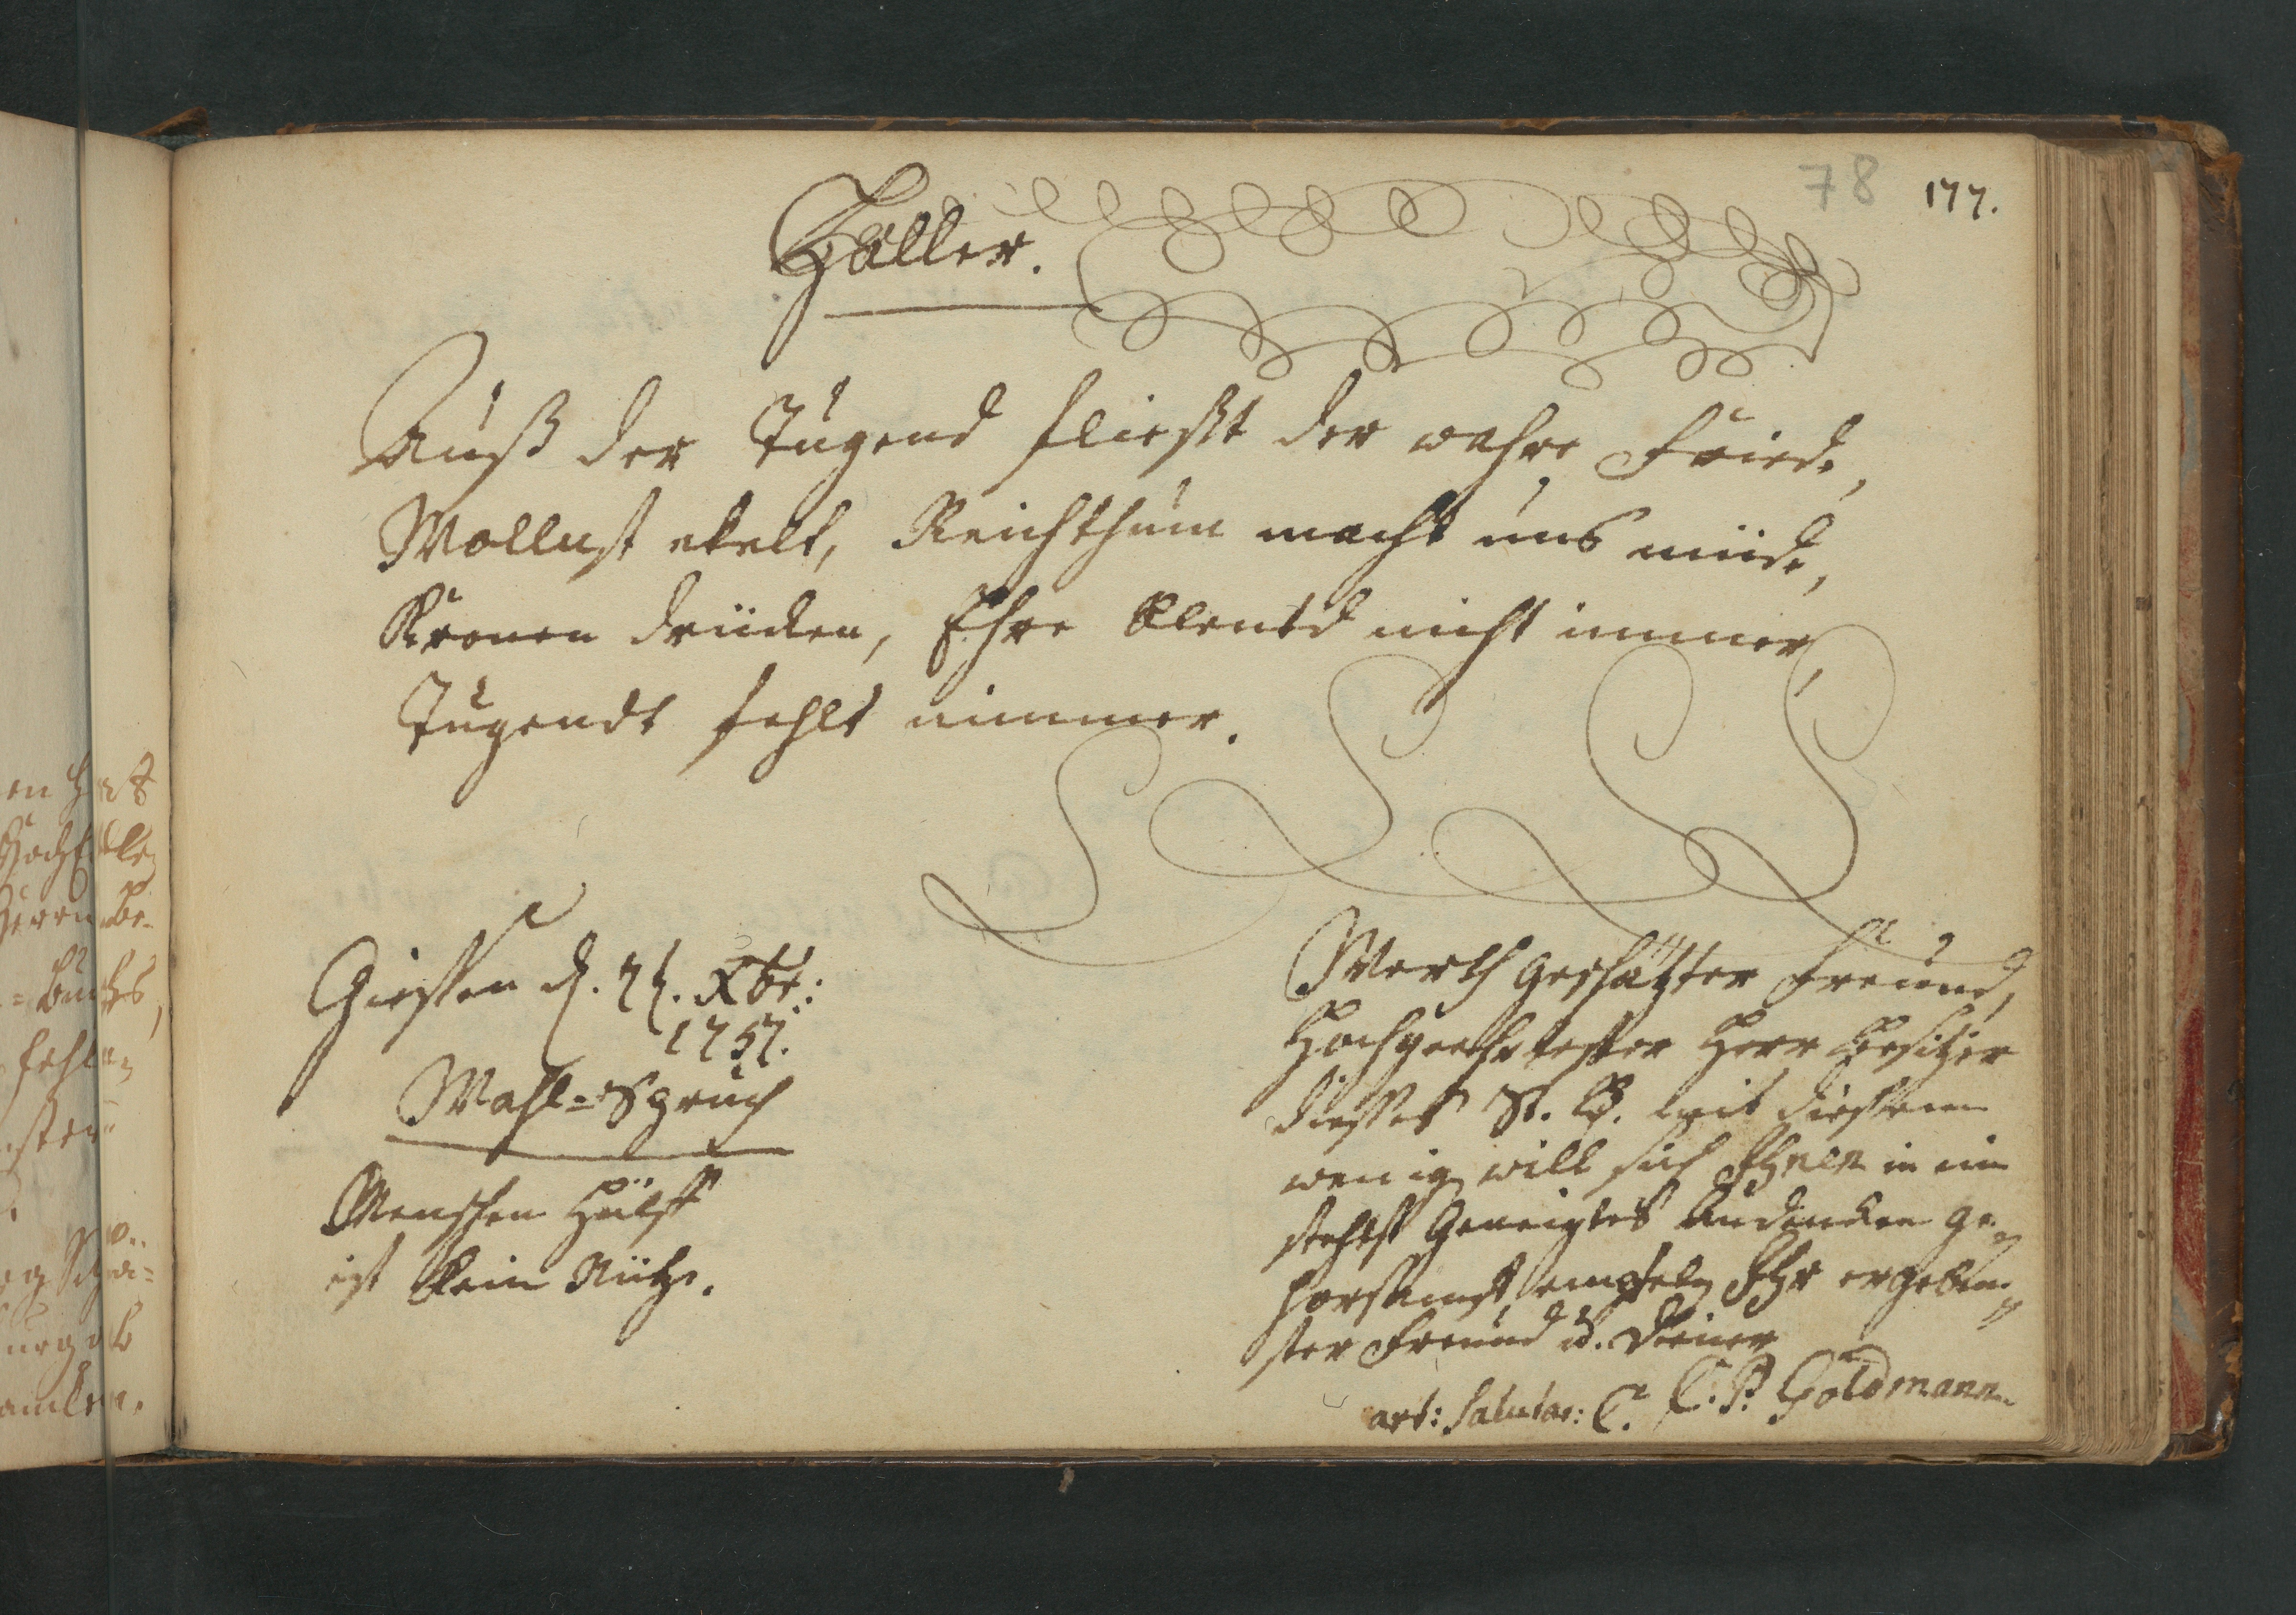 78 177.
Haller.
Auß der Tugend fließt der wahre Friede,
Wollust ekelt, Reichthum macht uns müde,
Kronen drücken, Ehre blentd nicht immer,
Tugendt fehlt nimmer.
Giessen d. Xbr:
1757.
Wahl-Spruch
Menschen Hülff
ist kein Nütze.
Werth geschätzter Freund,
Hochgeehrtester Herr Besitzer
dießes St. B. mit dießem
wenig will sich Ihnen in ein
stehtst Geneigtes Andencken ge-
horsamst, empfeln Ihr ergeben-
ster Freund u. Diener
C. P. Goldmann
art: Salutar: C.